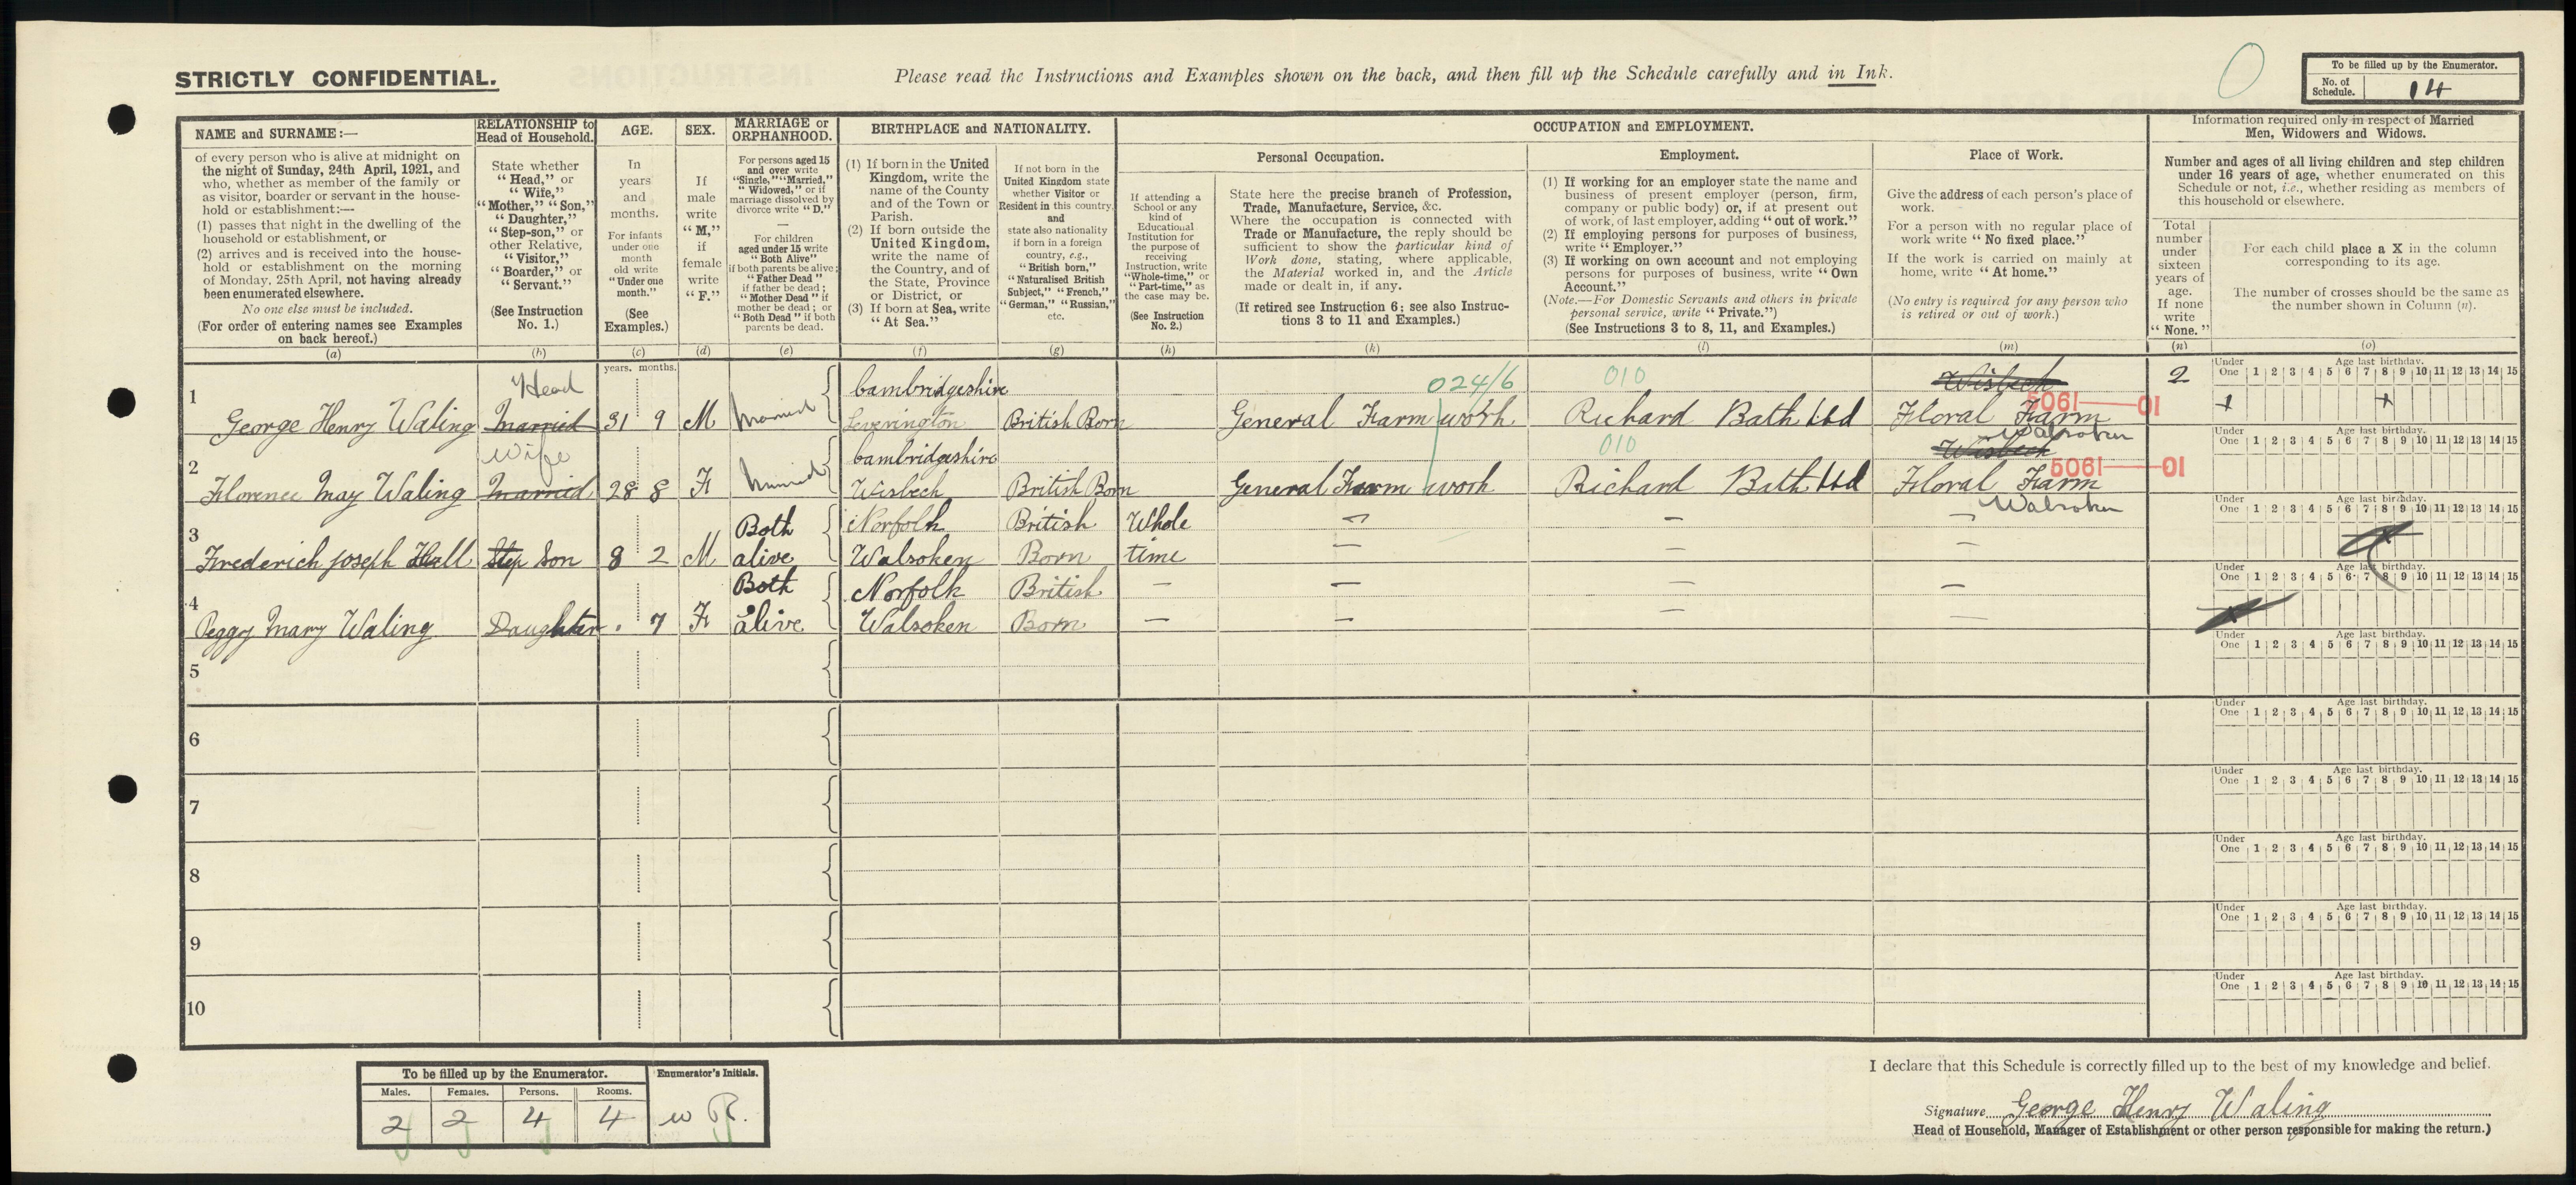 STRICTLY CONFIDENTIAL.
Please read the Instructions and Examples shown on the back, and then fill up the Schedule carefully and in Ink.
To be filled up by the Enumerator.
No. of Schedule. 14
NAME and SURNAME:—
of every person who is alive at midnight on
the night of Sunday, 24th April, 1921, and
who, whether as member of the family or
as visitor, boarder or servant in the house-
hold or establishment:—
(1) passes that night in the dwelling of the
household or establishment, or
(2) arrives and is received into the house-
hold or establishment on the morning
of Monday, 25th April, not having already
been enumerated elsewhere.
No one else must be included.
(For order of entering names see Examples
on back hereof.)
(a)
RELATIONSHIP to
Head of Household.
State whether
“Head,” or
“Wife,”
“Mother,” “Son,”
“Daughter,”
“Step-son,” or
other Relative,
“Visitor,”
“Boarder,” or
“Servant.”
(See Instruction
No. 1.)
(b)
AGE.
In
years
and
months.
For infants
under one
month
old write
“Under one
month.”
(See
Examples.)
(c)
years. months.
SEX.
If
male
write
“M,”
if
female
write
“F.”
(d)
MARRIAGE or
ORPHANHOOD.
For persons aged 15
and over write
“Single,” “Married,”
“Widowed,” or if
marriage dissolved by
divorce write “D.”
—
For children
aged under 15 write
“Both Alive”
if both parents be alive;
“Father Dead”
if father be dead;
“Mother Dead” if
mother be dead; or
“Both Dead” if both
parents be dead.
(e)
BIRTHPLACE and NATIONALITY.
(1) If born in the United
Kingdom, write the
name of the County
and of the Town or
Parish.
(2) If born outside the
United Kingdom,
write the name of
the Country, and of
the State, Province
or District, or
(3) If born at Sea, write
“At Sea.”
(f)
If not born in the
United Kingdom state
whether Visitor or
Resident in this country,
and
state also nationality
if born in a foreign
country, e.g.,
“British born,”
“Naturalised British
Subject,” “French,”
“German,” “Russian,”
etc.
(g)
OCCUPATION and EMPLOYMENT.
If attending a
School or any
kind of
Educational
Institution for
the purpose of
receiving
Instruction, write
“Whole-time,” or
“Part-time,” as
the case may be.
(See Instruction
No. 2.)
(h)
Personal Occupation.
State here the precise branch of Profession,
Trade, Manufacture, Service, &c.
Where the occupation is connected with
Trade or Manufacture, the reply should be
sufficient to show the particular kind of
Work done, stating, where applicable,
the Material worked in, and the Article
made or dealt in, if any.
(If retired see Instruction 6; see also Instruc-
tions 3 to 11 and Examples.)
(k)
Employment.
(1) If working for an employer state the name and
business of present employer (person, firm,
company or public body) or, if at present out
of work, of last employer, adding “out of work.”
(2) If employing persons for purposes of business,
write “Employer.”
(3) If working on own account and not employing
persons for purposes of business, write “Own
Account.”
(Note.—For Domestic Servants and others in private
personal service, write “Private.”)
(See Instructions 3 to 8, 11, and Examples.)
(l)
Place of Work.
Give the address of each person's place of
work.
For a person with no regular place of
work write “No fixed place.”
If the work is carried on mainly at
home, write “At home.”
(No entry is required for any person who
is retired or out of work.)
(m)
Information required only in respect of Married
Men, Widowers and Widows.
Number and ages of all living children and step children
under 16 years of age, whether enumerated on this
Schedule or not, i.e., whether residing as members of
this household or elsewhere.
Total
number
under
sixteen
years of
age.
If none
write
“None.”
(n)
For each child place a X in the column
corresponding to its age.
The number of crosses should be the same as
the number shown in Column (n).
(o)
Under One Age last birthday. 1 2 3 4 5 6 7 8 9 10 11 12 13 14 15
1
Head
Cambridgeshire
024/6 010 Wisbech 2
George Henry Waling Married 31 9 M Married Leverington British Born General Farm work Richard Bath Ltd Floral Farm
Walsoken
10—1905
2
Wife
Cambridgeshire
010 Wisbech
Florence May Waling Married 28 8 F Married Wisbech British Born General Farm work Richard Bath Ltd Floral Farm
Walsoken
10—1905
3
Both Norfolk British Whole
Frederick Joseph Hall Step Son 8 2 M alive Walsoken Born time
4
Both Norfolk British
Peggy Mary Waling Daughter 7 F alive Walsoken Born
5
6
7
8
9
10
To be filled up by the Enumerator. Enumerator's Initials.
Males. Females. Persons. Rooms.
2 2 4 4 W R.
I declare that this Schedule is correctly filled up to the best of my knowledge and belief.
Signature George Henry Waling
Head of Household, Manager of Establishment or other person responsible for making the return.)